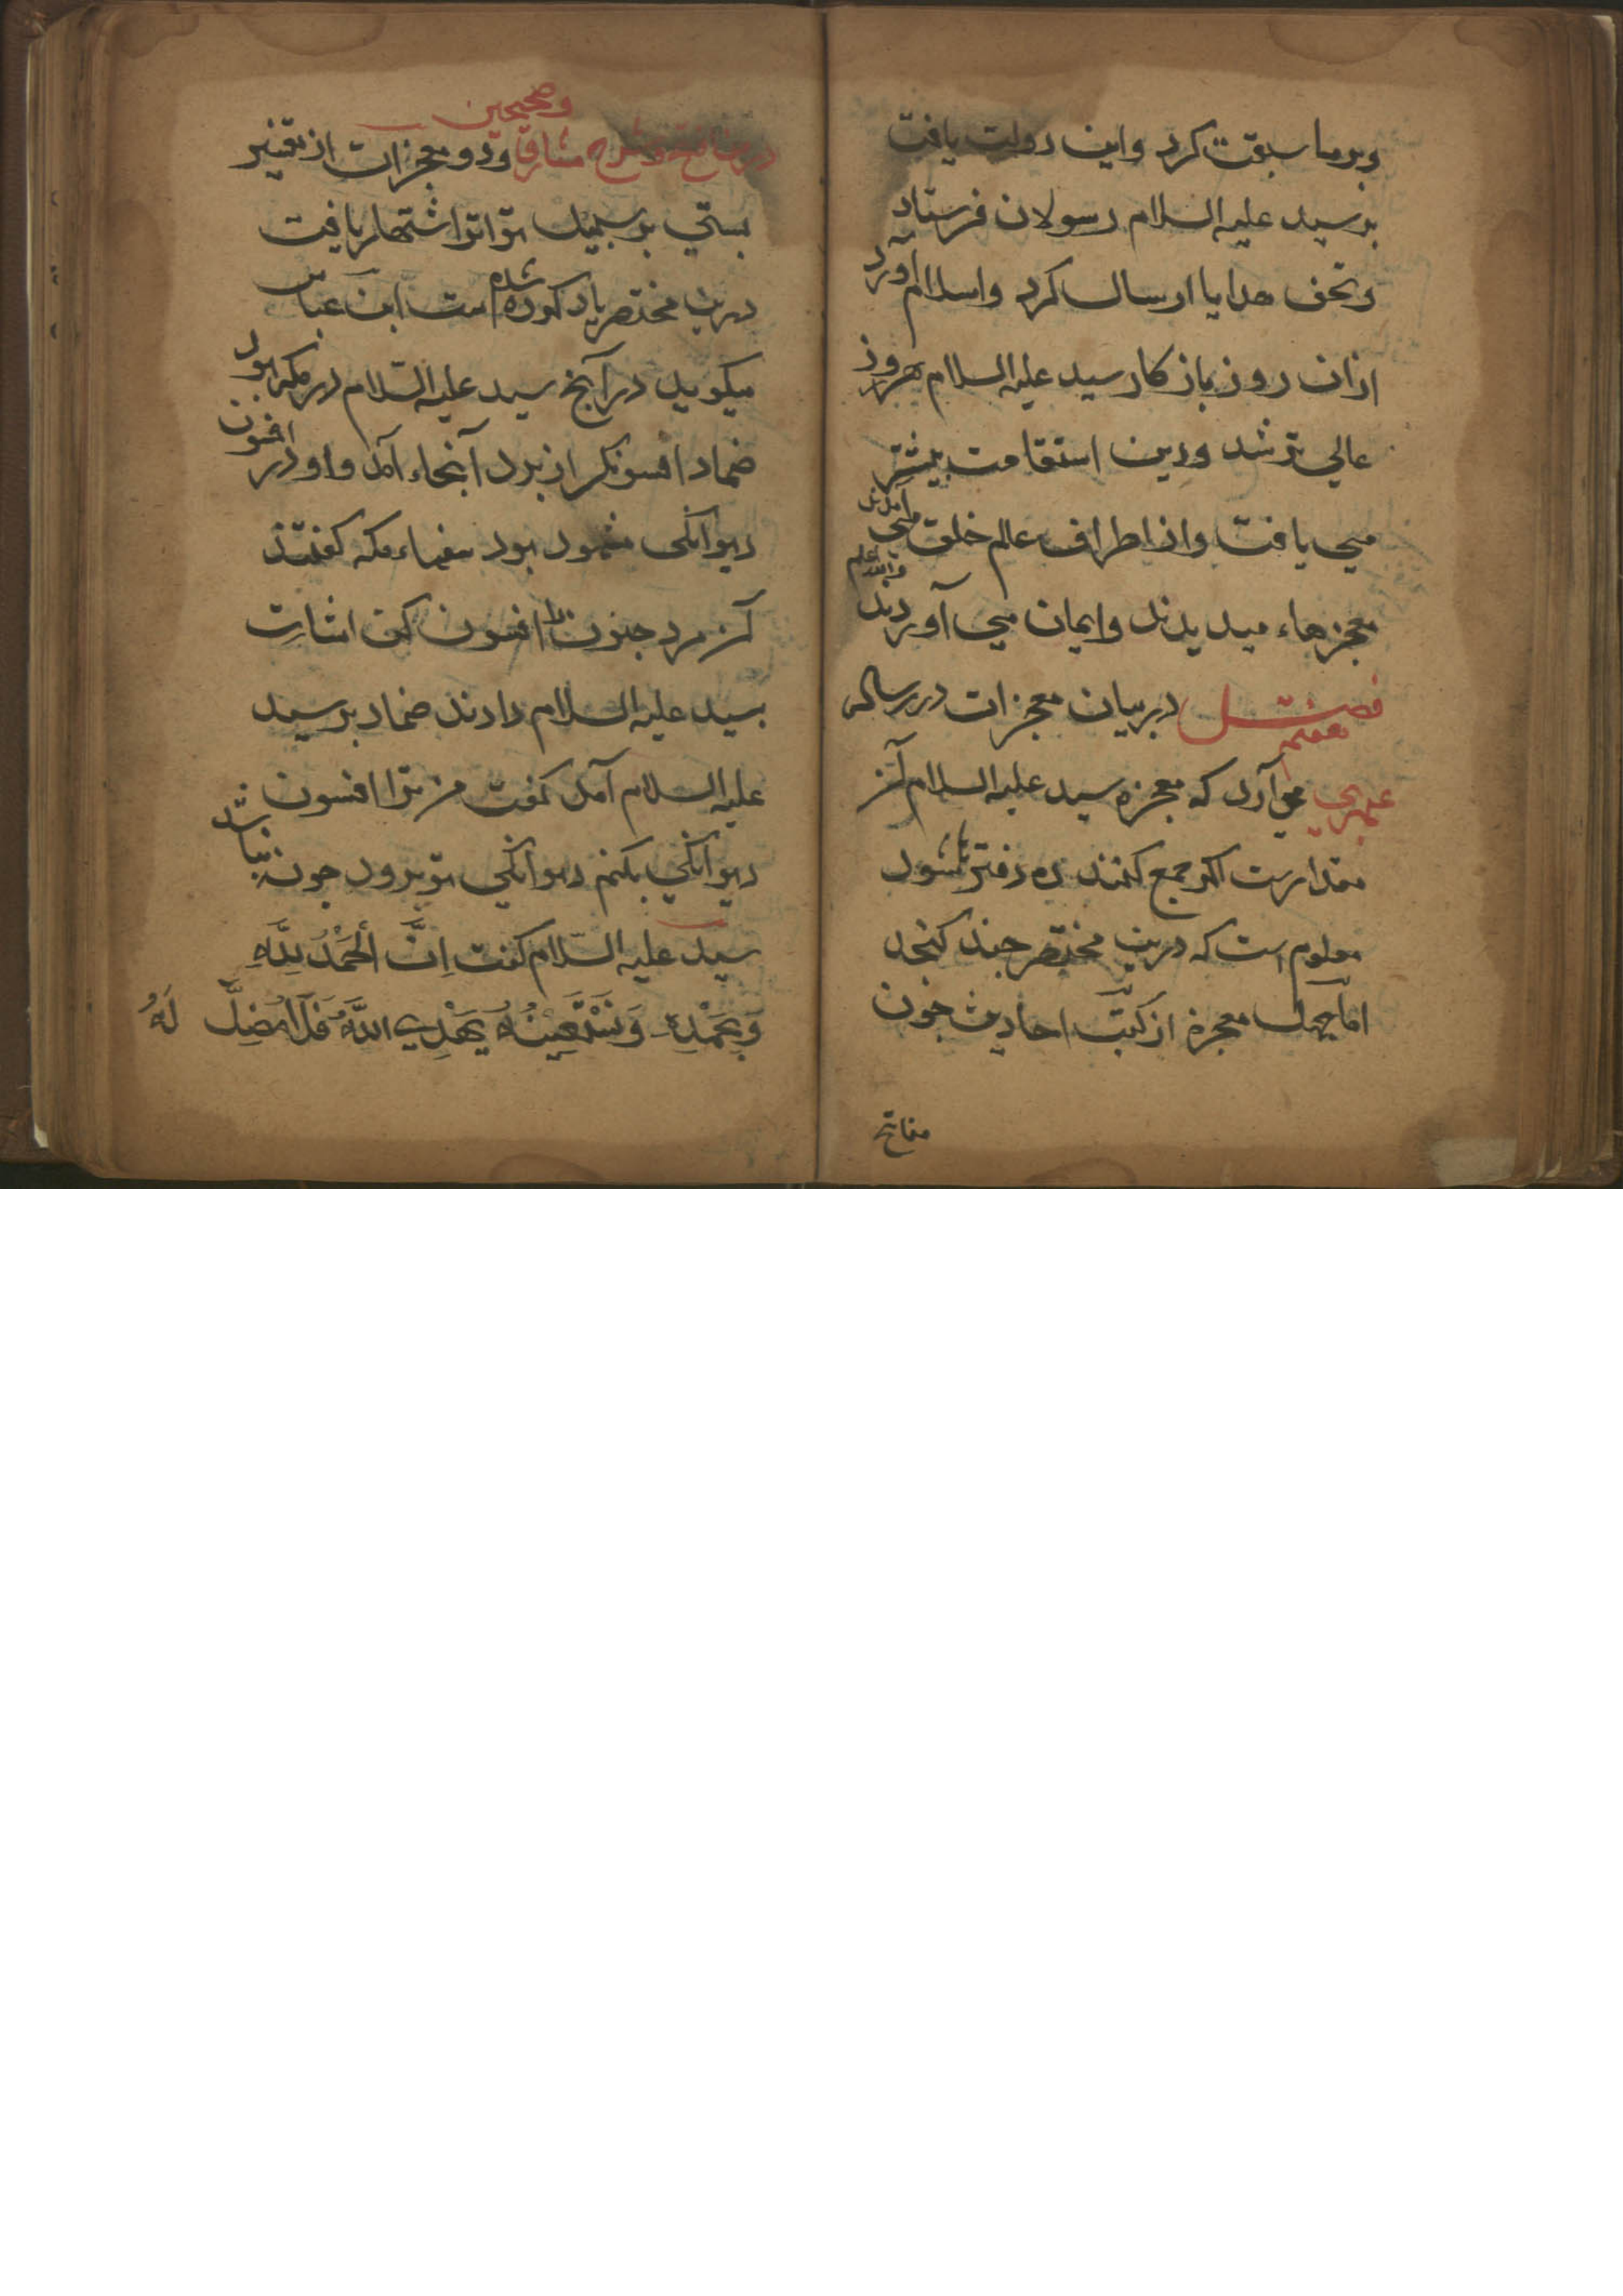 وبرما سبقت کرد واین دولت یافت
بر سید علیه السلام رسولان فرستاد
وتحف هدایا ارسال کرد واسلام آورد
ازان روز باز کار سید علیه السلام هر روز
عالی تر شد ودین استقامت بیشتر
می یافت واز اطراف عالم خلق می آمدند
معجزهاء میدیدند وایمان می آوردند والله اعلم
فصل هفتم در بیان معجزات در رساله
می آرد که معجزه سید علیه السلام آنز
مقدارست اگر جمع کنند ده دفتر باشود
معلوم است که درین مختصر چند کنجد
اما چهل معجزه از کتب احادیث چون
مفاتح
وصحیحین
وشرح مشارق ودو معجزات از تفسیر
بستی بر سبیل تواتر اشتهار یافت
درین مختصر یاد کرده شده است ابن عباس
میگوید در آنچ سید علیه السلام در مکه بود
ضماد افسونکر از برد آنجاء آمد واو در افسون
دیوانکی مشهود بود سفهاء مکه گفتند
آنز مرد جنون را افسون کن اشارت
بسید علیه السلام دادند ضماد بر سید
علیه السلام آمد گفت من ترا افسون
دیوانکی بکنم دیوانکی تو برود چون بباشد
سید علیه السلام گفت اِنَّ الْحَمْدُ لِلَّهِ
وَبِحَمْدِهِ وَنَسْتَعِينُهُ يَهْدِي اللَّهُ فَلَا مُضِلَّ لَهُ